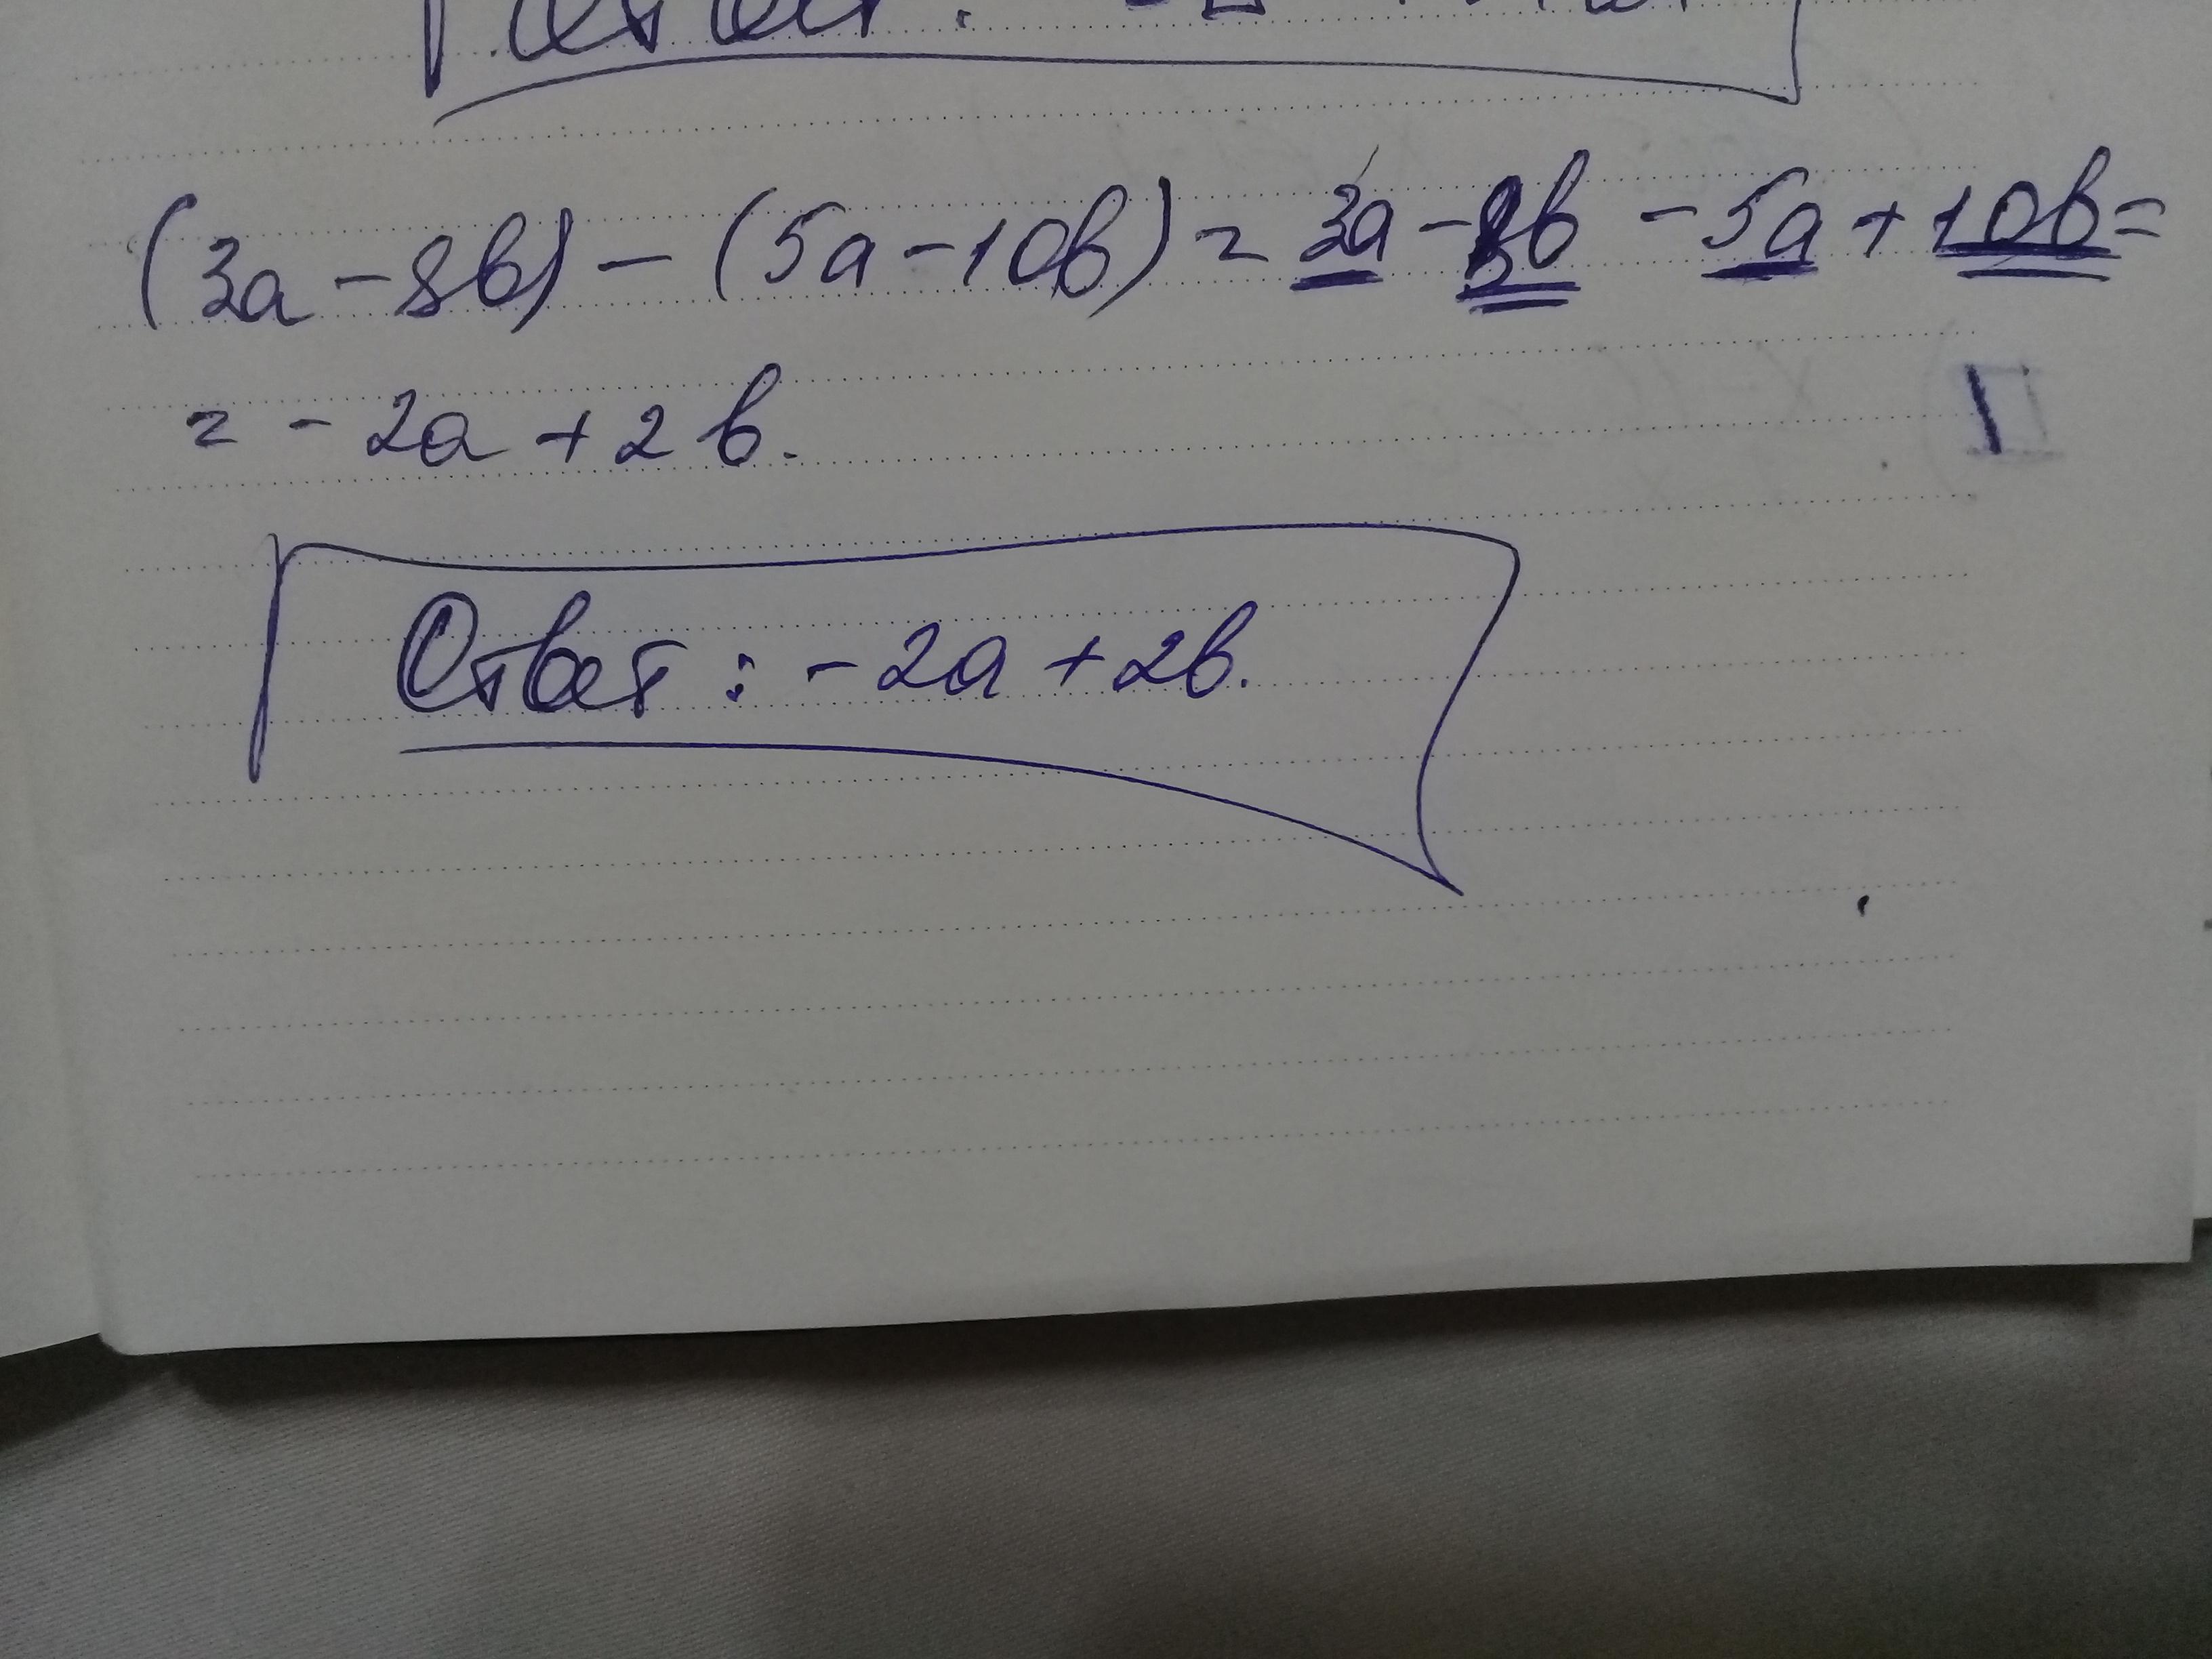 (3a - 8b) - (5a - 10b) = 3a - 8b - 5a + 10b =
= - 2a + 2b.
Ответ: - 2a + 2b.